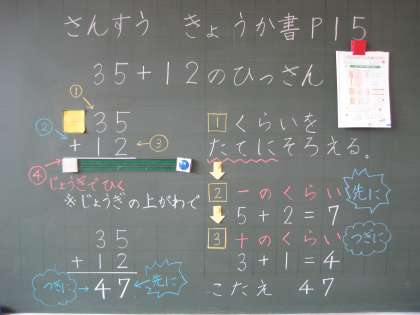 さんすう きょうか書P15
35+12のひっさん
①
35
②
+12 ③
④
じょうぎでひく
※じょうぎの上がわで
35
+12
47
つぎに
先に
1 くらいを
たてにそろえる。
2 一のくらい 先に
5+2=7
3 十のくらい つぎに
3+1=4
こたえ 47